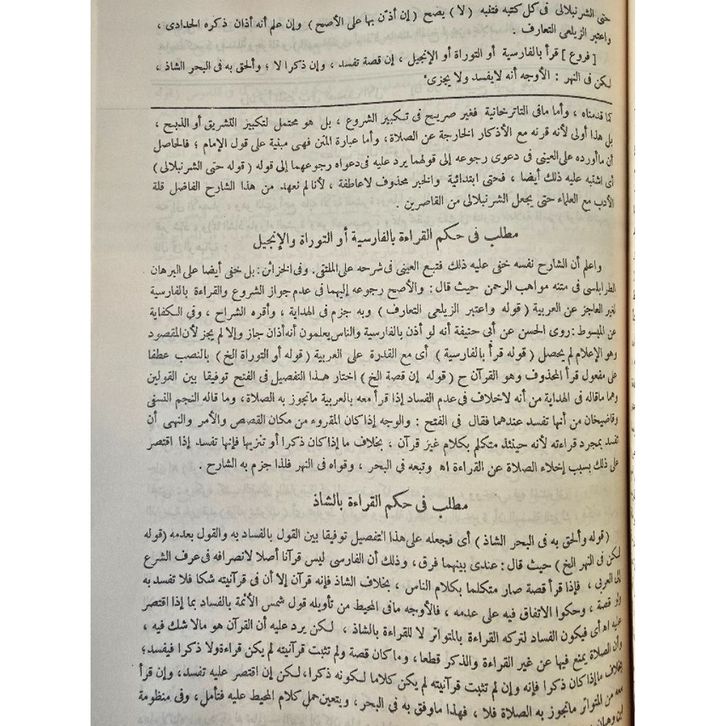 حتى الشرنبلالى فى كل كتبه فتنبه ( لا ) يصح ( إن أذن بها على الأصح ) وإن علم أنه أذان ذكره الحدادى ،
واعتبر الزيلعى التعارف .
[ فروع ] قرأ بالفارسية أو التوراة أو الإنجيل ، إن قصة تفسد ، وإن ذكرا لا ؛ وألحق به فى البحر الشاذ ،
لكن فى النهر : الأوجه أنه لايفسد ولا يجزى
كما قدمناه ، وأما مافى التاترخانية فغير صريح فى تكبير الشروع ، بل هو محتمل لتكبير التشريق أو الذبح ،
بل هذا أولى لأنه قرنه مع الأذكار الخارجة عن الصلاة، وأما عبارة المتن فهى مبنية على قول الإمام ؛ فالحاصل
أن ماأورده على العينى فى دعوى رجوعه إلى قولهما يرد عليه فى دعواه رجوعهما إلى قوله ( قوله حتى الشرنبلالى )
أى اشتبه عليه ذلك أيضا ، فحتى ابتدائية والخبر محذوف لاعاطفة ، لأنا لم نعهد من هذا الشارح الفاضل قلة
الأدب مع العلماء حتى يجعل الشرنبلالى من القاصرين .
مطلب فى حكم القراءة بالفارسية أو التوراة والإنجيل
واعلم أن الشارح نفسه خفى عليه ذلك فتبع العينى فى شرحه على الملتقى. وفى الخزائن: بل خفى أيضا على البرهان
الطرابلسى فى متنه مواهب الرحمن حيث قال : والأصح رجوعه إليهما فى عدم جواز الشروع والقراءة بالفارسية
لغير العاجز عن العربية ( قوله واعتبر الزيلعى التعارف ) وبه جزم فى الهداية ، وأقره الشراح ، وفى الكفاية
عن المبسوط : روى الحسن عن أبى حنيفة أنه لو أذن بالفارسية والناس يعلمون أنه أذان جاز وإلا لم يجز لأن المقصود
وهو الإعلام لم يحصل ( قوله قرأ بالفارسية ) أى مع القدرة على العربية ( قوله أو التوراة الخ ) بالنصب عطفا
على مفعول قرأ المحذوف وهو القرآن ح ( قوله إن قصة الخ ) اختار هذا التفصيل فى الفتح توفيقا بين القولين
وهما ماقاله فى الهداية من أنه لاخلاف فى عدم الفساد إذا قرأ معه بالعربية مانجوز به الصلاة، وما قاله النجم النسفى
وقاضيخان من أنها تفسد عندهما فقال فى الفتح : والوجه إذا كان المقروء من مكان القصص والأمر والنهى أن
تفسد بمجرد قراءته لأنه حينئذ متكلم بكلام غير قرآن ، بخلاف ما إذا كان ذكرا أو تنزيها فإنها تفسد إذا اقتصر
على ذلك بسبب إخلاء الصلاة عن القراءة اه وتبعه فى البحر ، وقواه فى النهر فلذا جزم به الشارح .
مطلب فى حكم القراءة بالشاذ
( قوله وألحق به فى البحر الشاذ ) أى فجعله على هذا التفصيل توفيقا بين القول بالفساد به والقول بعدمه ( قوله
لكن فى النهر الخ ) حيث قال : عندى بينهما فرق، وذلك أن الفارسى ليس قرآنا أصلا لانصرافه فى عرف الشرع
إلى العربى ، فإذا قرأ قصة صار متكلما بكلام الناس ، بخلاف الشاذ فإنه قرآن إلا أن فى قرآنيته شكا فلا تفسد به
ولو قصة ، وحكوا الاتفاق فيه على عدمه ، فالأوجه مافى المحيط من تأويله قول شمس الأئمة بالفساد بما إذا اقتصر
عليه اه أى فيكون الفساد لتركه القراءة بالمتواتر لا للقراءة بالشاذ ، لكن يرد عليه أن القرآن هو مالا شك فيه ،
وأن الصلاة يمنع فيها عن غير القراءة والذكر قطعا، وما كان قصة ولم تثبت قرآنيته لم يكن قراءة ولا ذكرا فيفسد؛
بخلاف ما إذا كان ذكرا فإنه وإن لم تثبت قرآنيته لم يكن كلاما لكونه ذكرا، لكن إن اقتصر عليه تفسد، وإن قرأ
معه من المتواتر مانجوز به الصلاة فلا ، فهذا ماوفق به فى البحر ، ويتعين حمل كلام المحيط عليه فتأمل، وفى منظومة